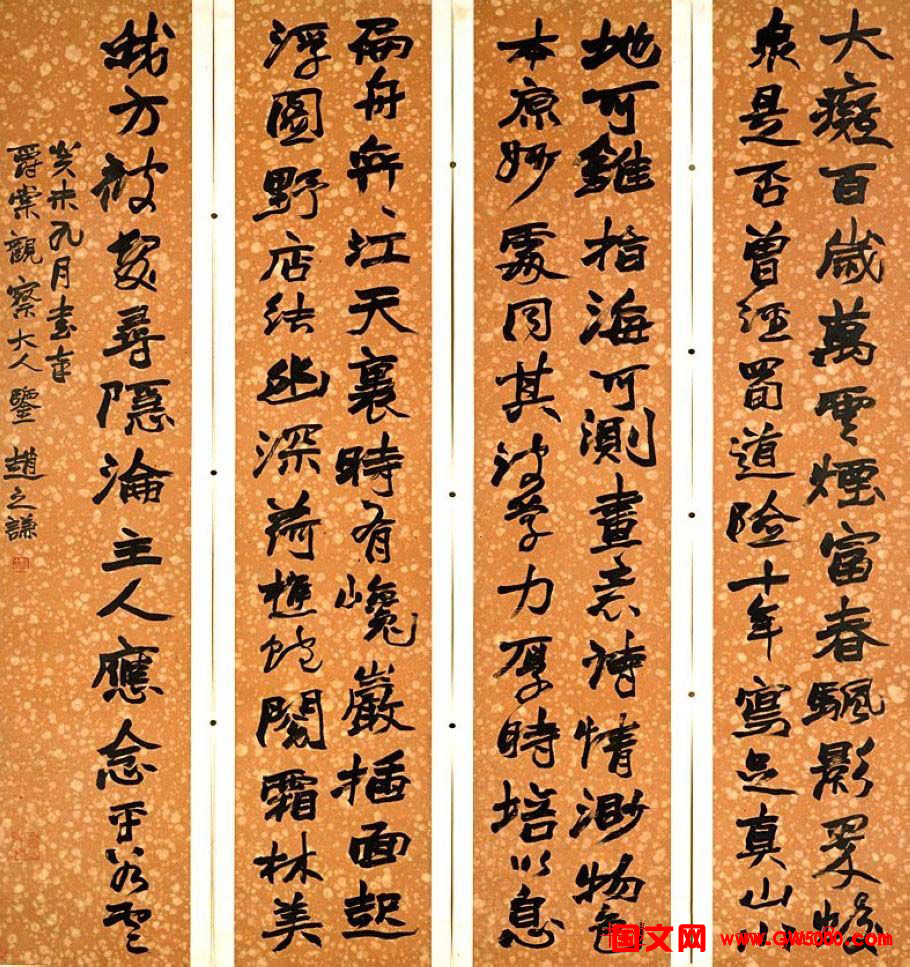 大癡百歲萬雲煙富春影
泉是否曾經蜀道險十年寫足真山水
地可雖指海可測畫意詩情渺物色
本原妙處其學力厚時培以息
扁舟江天裏時有巉巖插面起
浮圖野店結幽深荷樵閣霜林美
我方被髮尋隱淪主人應念平
癸未九月書奉
爵棠觀察大人鑒 趙之謙
国文网 www.GW5000.com